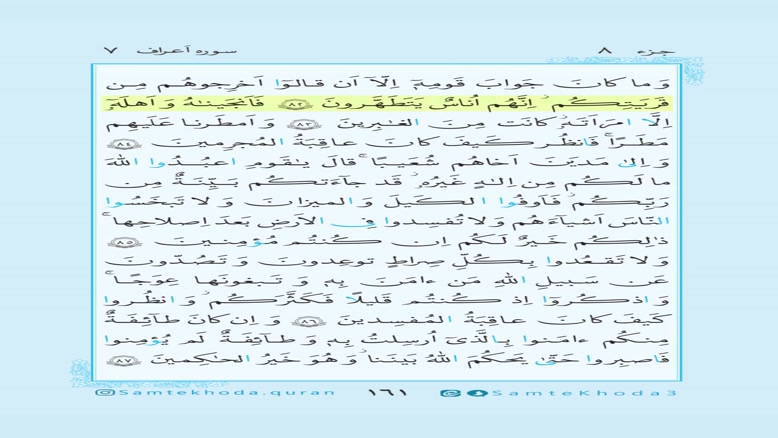 جزء ۸
سوره اعراف ۷
وَ ما كانَ جَوابَ قَومِهٖٓ اِلّآ اَن قالوٓا اَخرِجوهُم مِن
قَريَتِكُم ۖ اِنَّهُم اُناسٌ يَتَطَهَّرونَ ﴿۸۲﴾ فَاَنجَينٰهُ وَ اَهلَهٗٓ
اِلَّا امرَاَتَهٗ كانَت مِنَ الغٰبِرينَ ﴿۸۳﴾ وَ اَمطَرنا عَلَيهِم
مَطَرًا ۖ فَانظُر كَيفَ كانَ عاقِبَةُ المُجرِمينَ ﴿۸۴﴾
وَ اِلىٰ مَديَنَ اَخاهُم شُعَيبًا ۗ قالَ يٰقَومِ اعبُدُوا اللّٰهَ
ما لَكُم مِن اِلٰهٍ غَيرُهٗ ۖ قَد جآءَتكُم بَيِّنَةٌ مِن
رَبِّكُم ۖ فَاَوفُوا الكَيلَ وَ الميزانَ وَ لا تَبخَسُوا
النّاسَ اَشيآءَهُم وَ لا تُفسِدوا فِى الاَرضِ بَعدَ اِصلاحِها ۚ
ذٰلِكُم خَيرٌ لَكُم اِن كُنتُم مُؤمِنينَ ﴿۸۵﴾
وَ لا تَقعُدوا بِكُلِّ صِراطٍ توعِدونَ وَ تَصُدّونَ
عَن سَبيلِ اللّٰهِ مَن ءامَنَ بِهٖ وَ تَبغونَها عِوَجًا ۚ
وَ اذكُروٓا اِذ كُنتُم قَليلًا فَكَثَّرَكُم ۖ وَ انظُروا
كَيفَ كانَ عاقِبَةُ المُفسِدينَ ﴿۸۶﴾ وَ اِن كانَ طآئِفَةٌ
مِنكُم ءامَنوا بِالَّذىٓ اُرسِلتُ بِهٖ وَ طآئِفَةٌ لَم يُؤمِنوا
فَاصبِروا حَتّىٰ يَحكُمَ اللّٰهُ بَينَنا ۚ وَ هُوَ خَيرُ الحٰكِمينَ ﴿۸۷﴾
Samtekhoda.quran
۱۶۱
SamteKhoda3